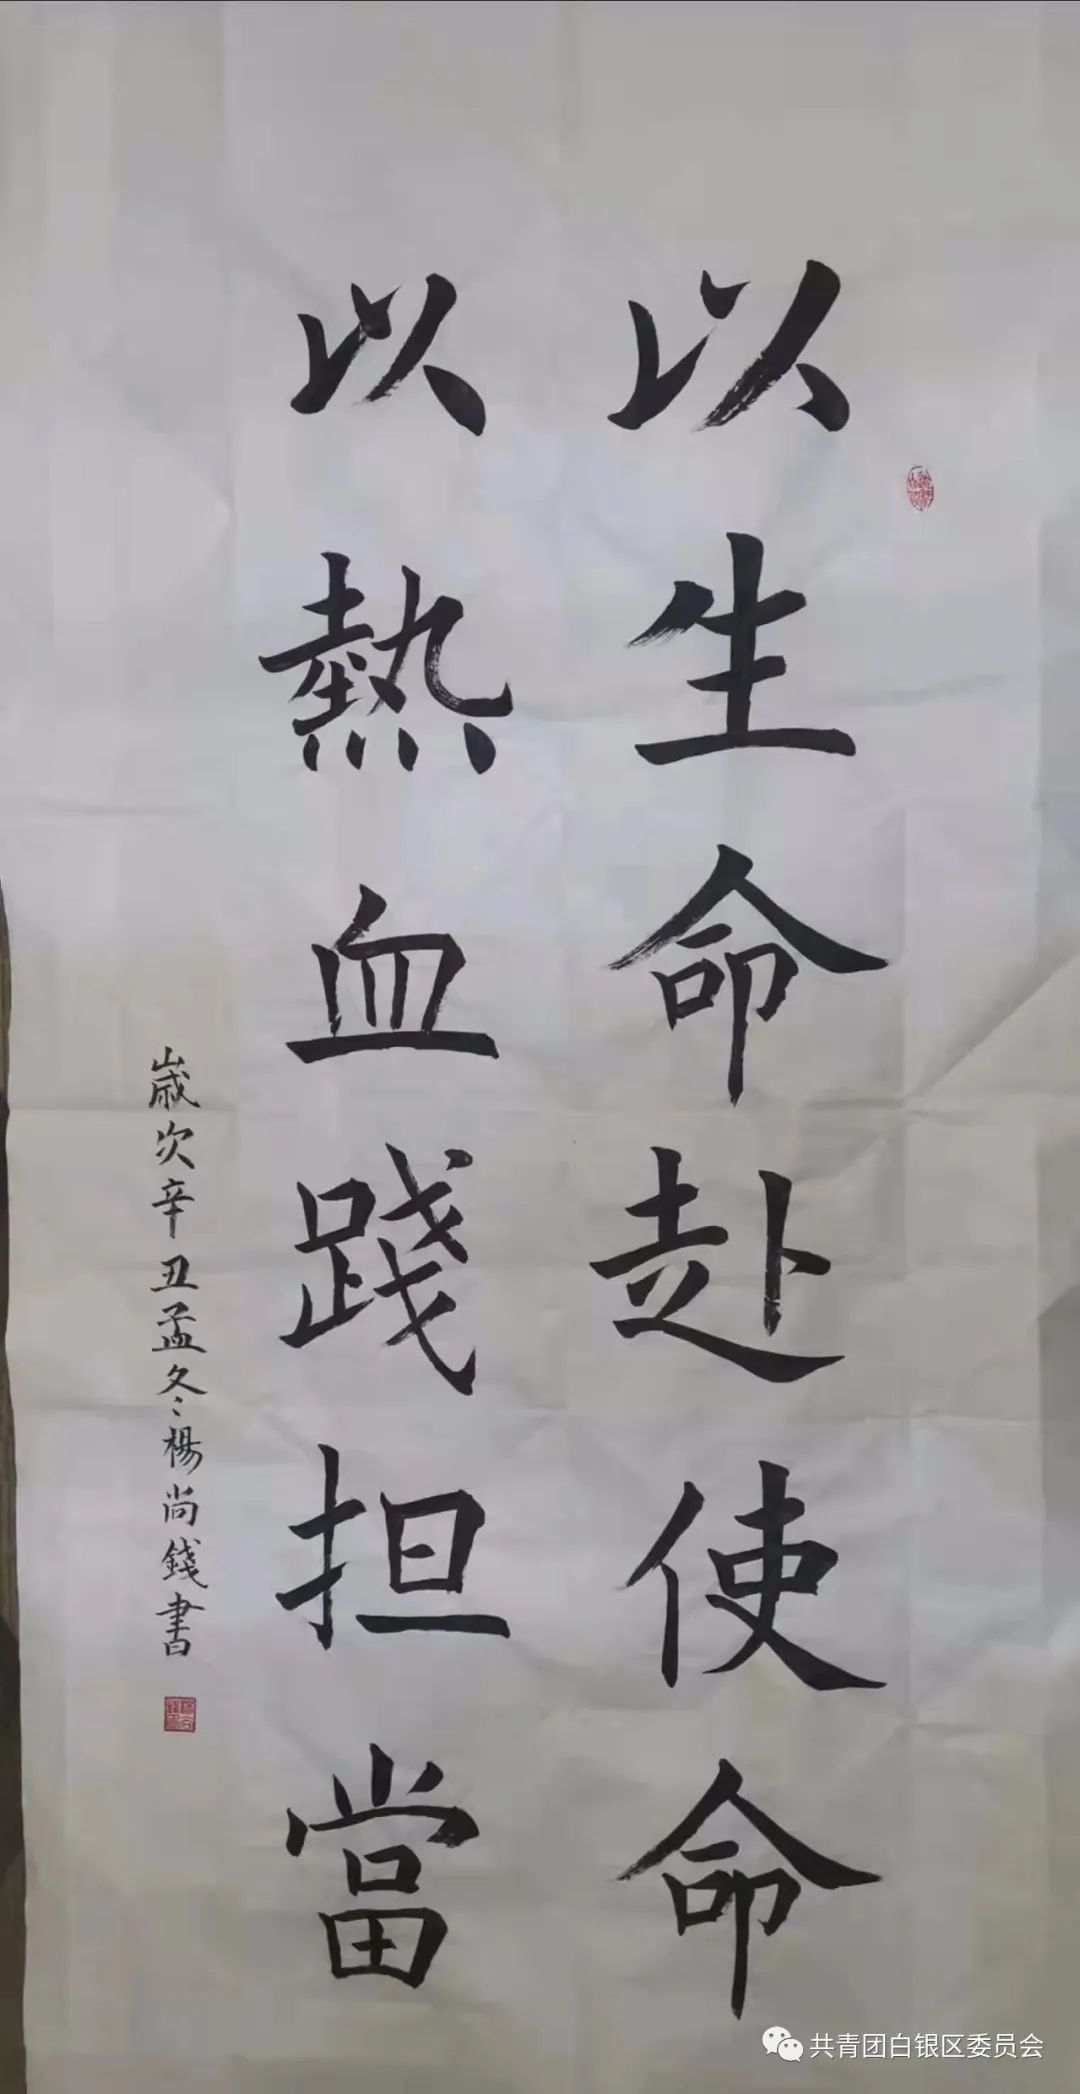 以生命赴使命
以熱血踐担當
歲次辛丑孟冬楊尚錢書
共青团白银区委员会